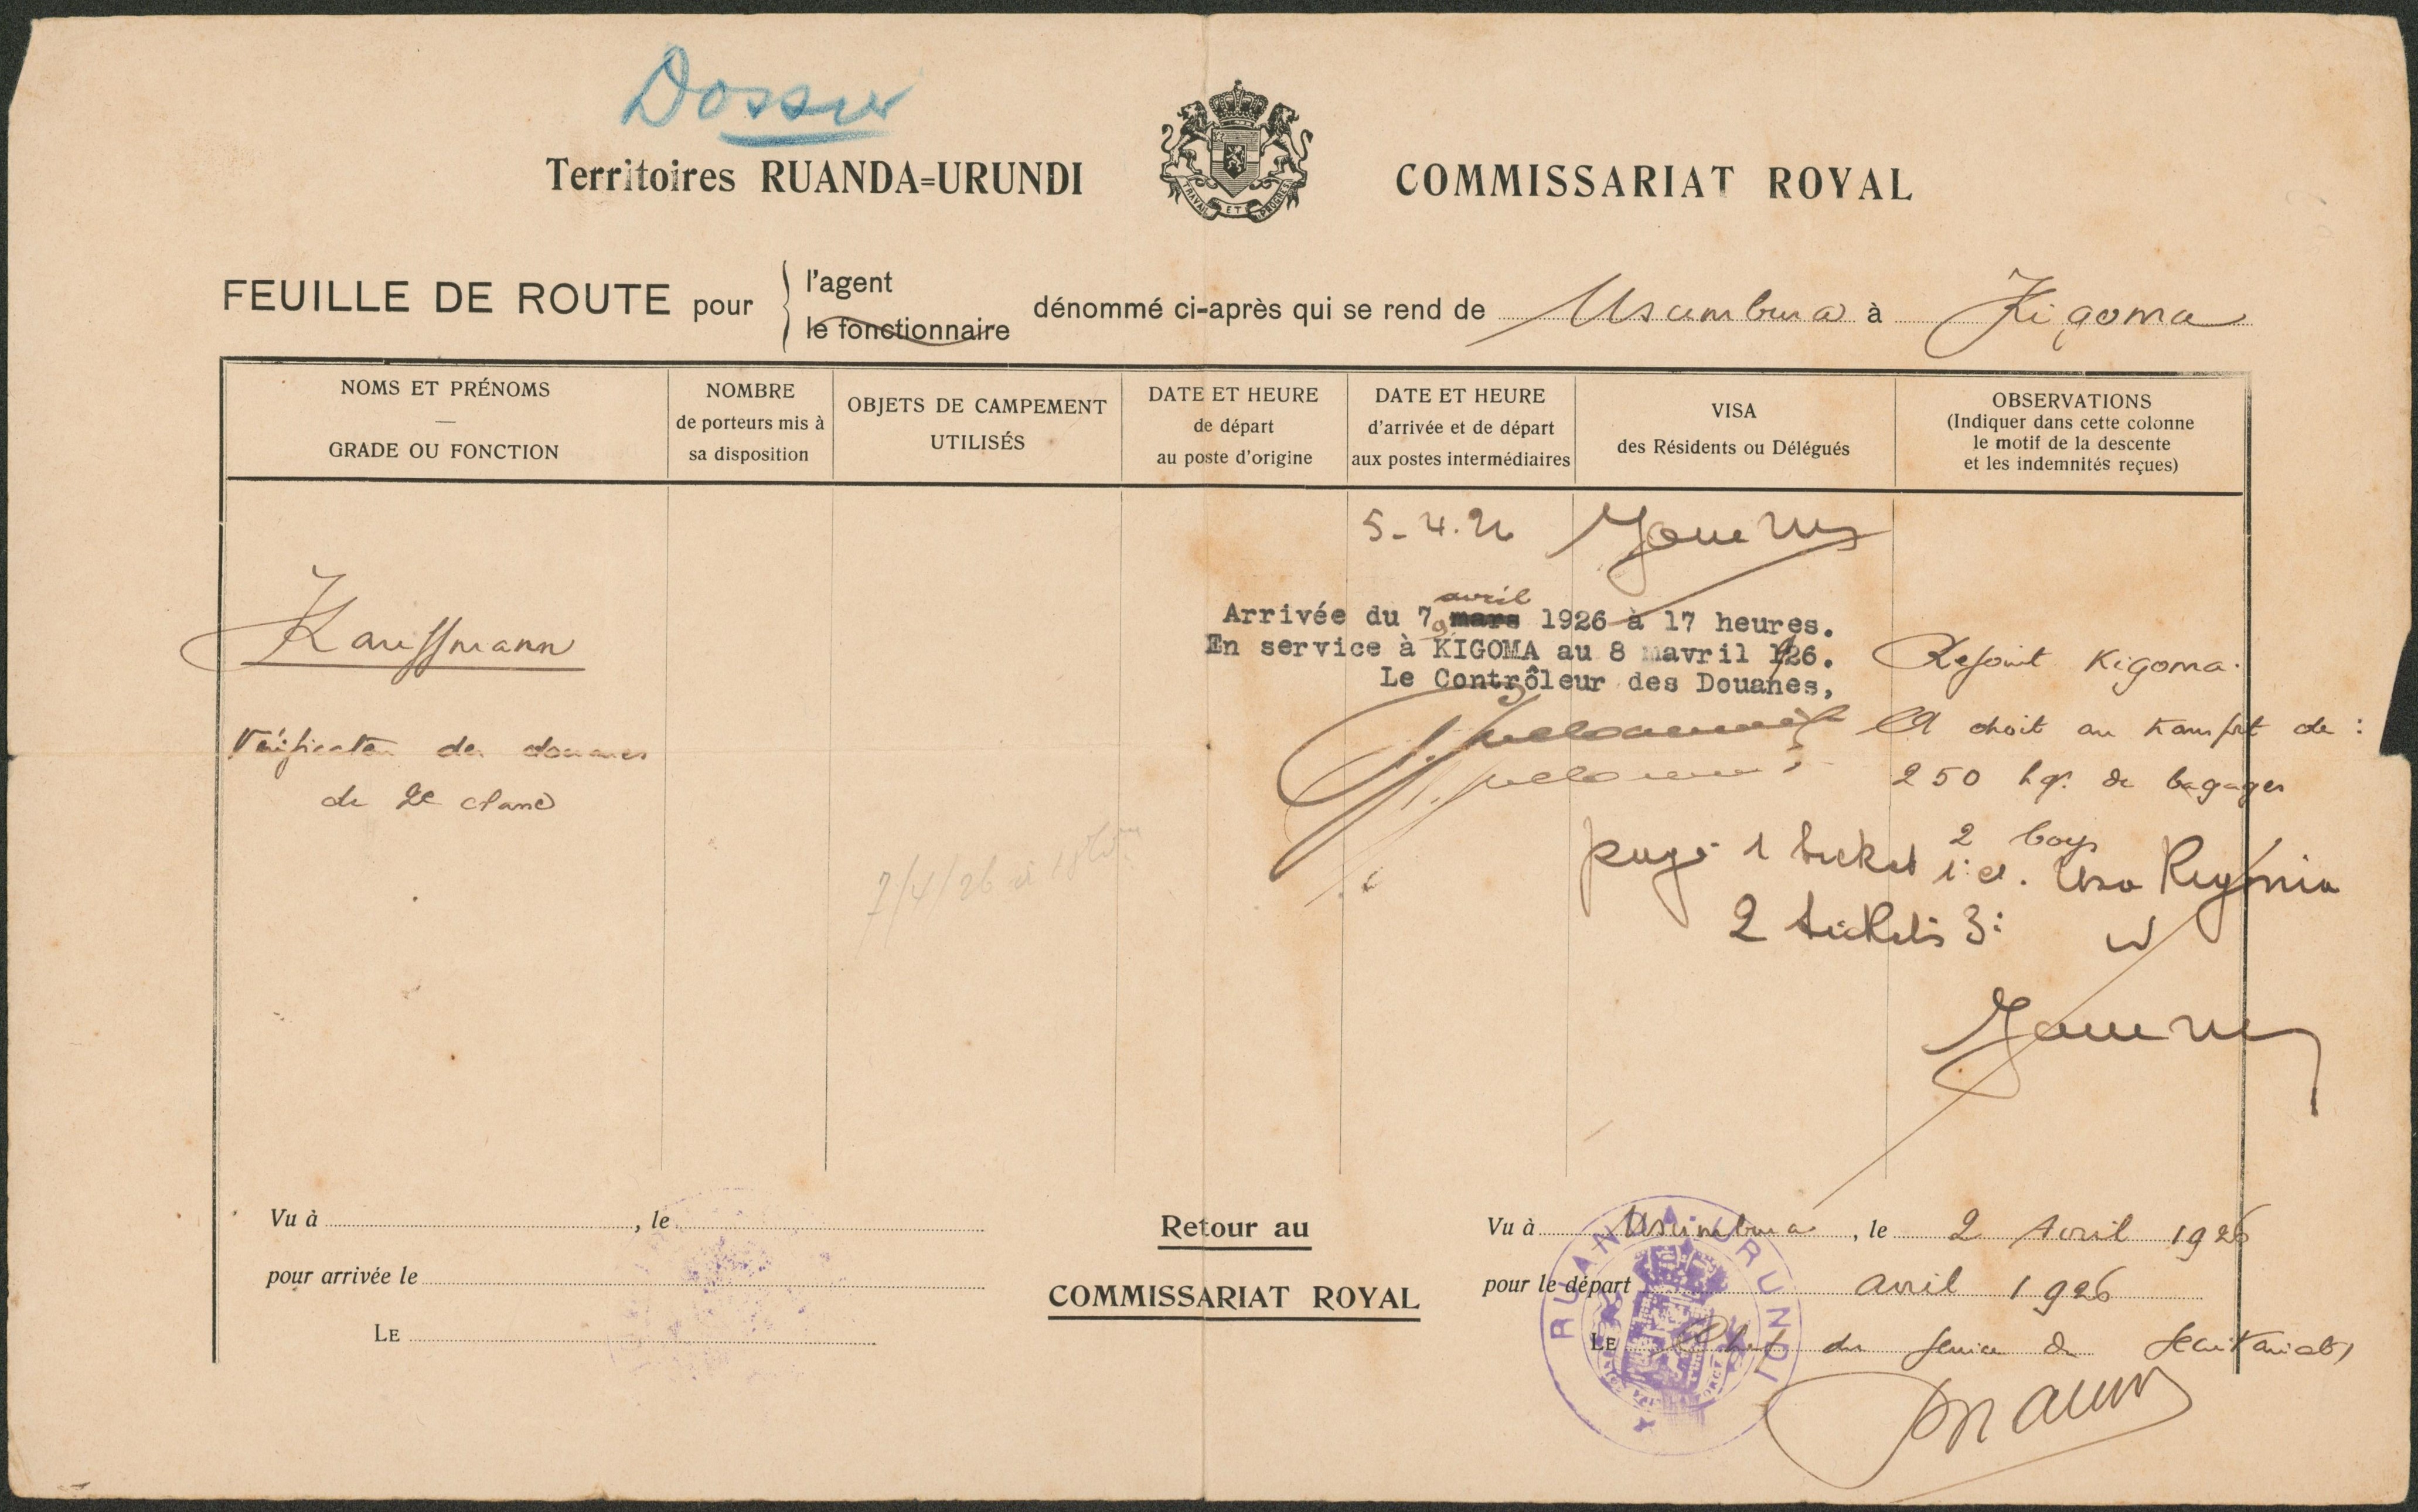 Dossier
Territoires RUANDA=URUNDI
COMMISSARIAT ROYAL
TRAVAIL ET PROGRÈS
FEUILLE DE ROUTE pour
l'agent
le fonctionnaire
dénommé ci-après qui se rend de Usumbura à Kigoma
NOMS ET PRÉNOMS
GRADE OU FONCTION
NOMBRE
de porteurs mis à
sa disposition
OBJETS DE CAMPEMENT
UTILISÉS
DATE ET HEURE
de départ
au poste d'origine
DATE ET HEURE
d'arrivée et de départ
aux postes intermédiaires
VISA
des Résidents ou Délégués
OBSERVATIONS
(Indiquer dans cette colonne
le motif de la descente
et les indemnités reçues)
5-4.26
Kauffmann
Vérificateur des douanes
de 2e classe
avril
Arrivée du 7 mars 1926 à 17 heures.
En service à KIGOMA au 8 avril 1926.
Le Contrôleur des Douanes,
Rejoint Kigoma.
A droit au transport de :
250 kgr. de bagages
2 boys
1 ticket
2 tickets 3:
7/4/26 à
Vu à , le
pour arrivée le
LE
Retour au
COMMISSARIAT ROYAL
Vu à Usumbura, le 2 Avril 1926
pour le départ avril 1926
LE Chef du Service du Secrétariat,
RUANDA-URUNDI